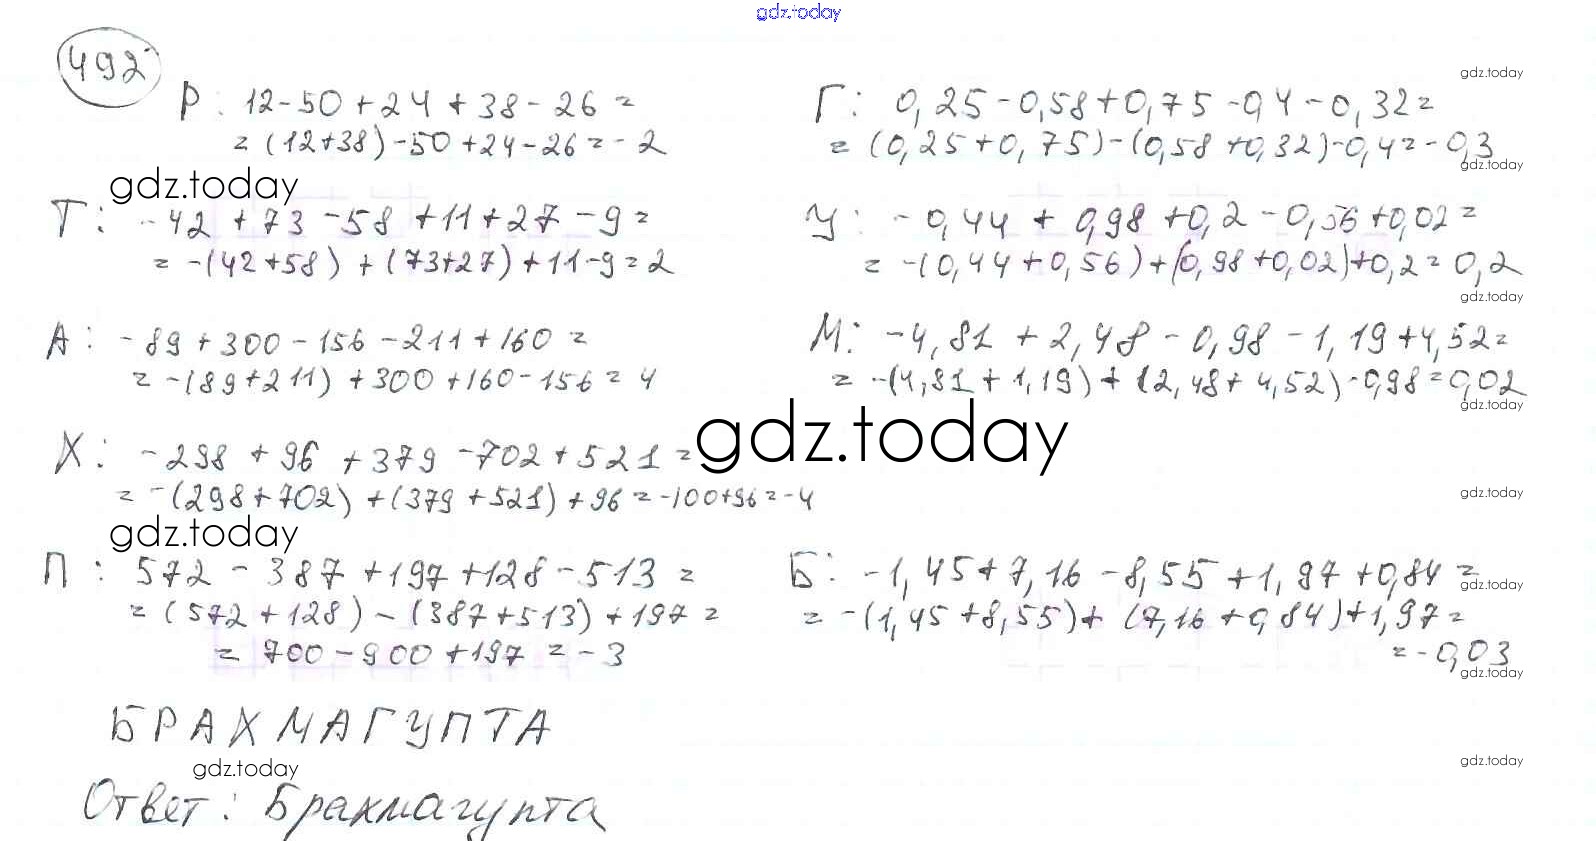 gdz.today
492
gdz.today
Р: 12-50+24+38-26=
=(12+38)-50+24-26=-2
gdz.today
Т: -42+73-58+11+27-9=
=-(42+58)+(73+27)+11-9=2
А: -89+300-156-211+160=
=-(89+211)+300+160-156=4
Х: -298+96+379-702+521=
=-(298+702)+(379+521)+96=-100+96=-4
gdz.today
gdz.today
П: 572-387+197+128-513=
=(572+128)-(387+513)+197=
=700-900+197=-3
gdz.today
Г: 0,25-0,58+0,75-0,4-0,32=
=(0,25+0,75)-(0,58+0,32)-0,4=-0,3
gdz.today
У: -0,44+0,98+0,2-0,56+0,02=
=-(0,44+0,56)+(0,98+0,02)+0,2=0,2
gdz.today
М: -4,81+2,48-0,98-1,19+4,52=
=-(4,81+1,19)+(2,48+4,52)-0,98=0,02
gdz.today
gdz.today
Б: -1,45+7,16-8,55+1,97+0,84=
gdz.today
=-(1,45+8,55)+(7,16+0,84)+1,97=
=-0,03
gdz.today
БРАХМАГУПТА
gdz.today
gdz.today
Ответ: Брахмагупта